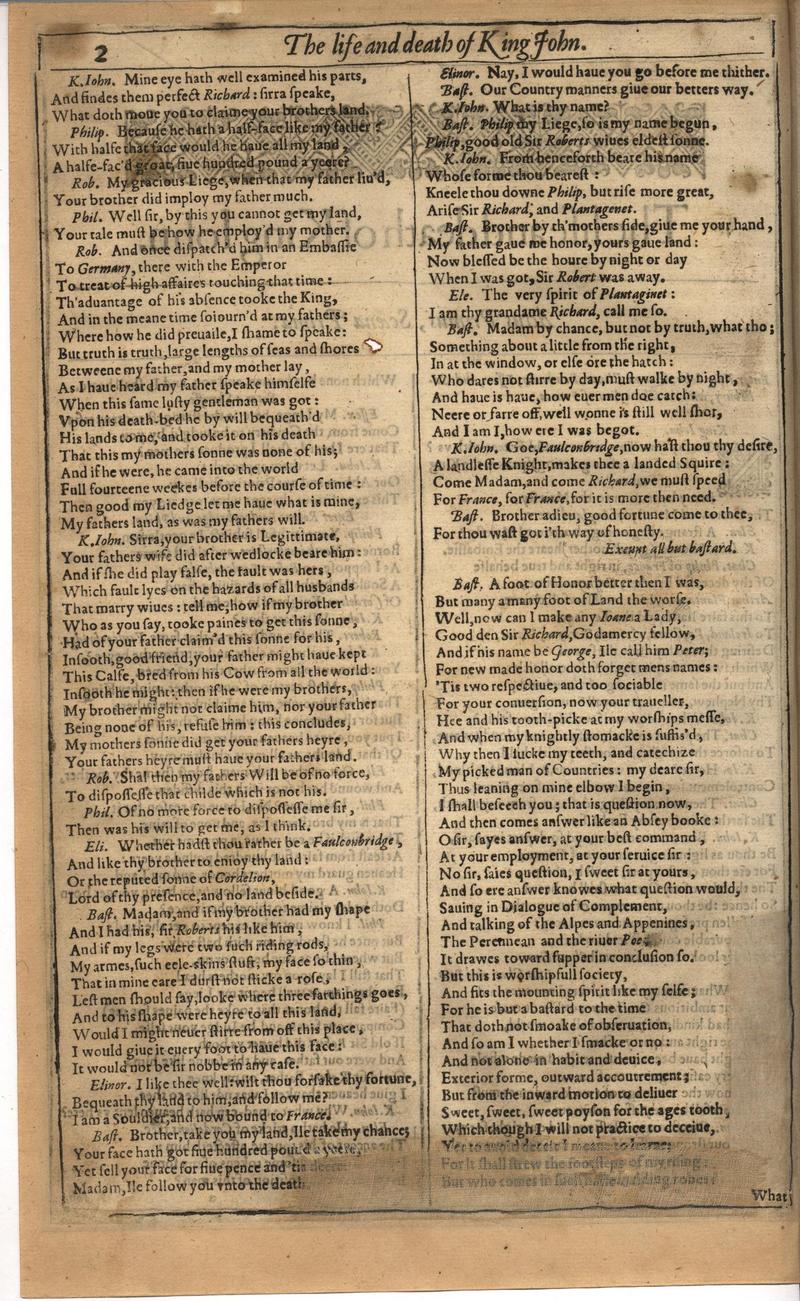 2
The life and death of King John.
K.Iohn. Mine eye hath well examined his parts,
And findes them perfect Richard: sirra speake,
What doth moue you to claime your brothers land.
Philip. Because he hath a half-face like my father?
With halfe that face would he haue all my land,
A halfe-fac'd groat, fiue hundred pound a yeere?
Rob. My gracious Liege, when that my father liu'd,
Your brother did imploy my father much.
Phil. Well sir, by this you cannot get my land,
Your tale must be how he employ'd my mother.
Rob. And once dispatch'd him in an Embassie
To Germany, there with the Emperor
To treat of high affaires touching that time:
Th'aduantage of his absence tooke the King,
And in the meane time soiourn'd at my fathers;
Where how he did preuaile, I shame to speake:
But truth is truth, large lengths of seas and shores
Betweene my father, and my mother lay,
As I haue heard my father speake himselfe
When this same lusty gentleman was got:
Vpon his death-bed he by will bequeath'd
His lands to me, and tooke it on his death
That this my mothers sonne was none of his;
And if he were, he came into the world
Full fourteene weekes before the course of time:
Then good my Liedge let me haue what is mine,
My fathers land, as was my fathers will.
K.Iohn. Sirra, your brother is Legittimate,
Your fathers wife did after wedlocke beare him:
And if she did play false, the fault was hers,
Which fault lyes on the hazards of all husbands
That marry wiues: tell me, how if my brother
Who as you say, tooke paines to get this sonne,
Had of your father claim'd this sonne for his,
Insooth, good friend, your father might haue kept
This Calfe, bred from his Cow from all the world:
Insooth he might: then if he were my brothers,
My brother might not claime him, nor your father
Being none of his, refuse him: this concludes,
My mothers sonne did get your fathers heyre,
Your fathers heyre must haue your fathers land.
Rob. Shal then my fathers Will be of no force,
To dispossesse that childe which is not his.
Phil. Of no more force to dispossesse me sir,
Then was his will to get me, as I think.
Eli. Whether hadst thou rather be a Faulconbridge,
And like thy brother to enioy thy land:
Or the reputed sonne of Cordelion,
Lord of thy presence, and no land beside.
Bast. Madam, and if my brother had my shape
And I had his, sir Roberts his like him,
And if my legs were two such riding rods,
My armes, such eele-skins stuft, my face so thin,
That in mine eare I durst not sticke a rose,
Lest men should say, looke where three farthings goes,
And to his shape were heyre to all this land,
Would I might neuer stirre from off this place,
I would giue it euery foot to haue this face:
It would not be sir nobbe in any case.
Elinor. I like thee well: wilt thou forsake thy fortune,
Bequeath thy land to him, and follow me?
I am a Souldier, and now bound to France.
Bast. Brother, take you my land, Ile take my chance;
Your face hath got fiue hundred pound a yeere,
Yet sell your face for fiue pence and 'tis deere:
Madam, Ile follow you vnto the death
Elinor. Nay, I would haue you go before me thither.
Bast. Our Country manners giue our betters way.
K.Iohn. What is thy name?
Bast. Philip my Liege, so is my name begun,
Philip, good old Sir Roberts wiues eldest sonne.
K.Iohn. From henceforth beare his name
Whose forme thou bearest:
Kneele thou downe Philip, but rise more great,
Arise Sir Richard, and Plantagenet.
Bast. Brother by th'mothers side, giue me your hand,
My father gaue me honor, yours gaue land:
Now blessed be the houre by night or day
When I was got, Sir Robert was away.
Ele. The very spirit of Plantaginet:
I am thy grandame Richard, call me so.
Bast. Madam by chance, but not by truth, what tho;
Something about a little from the right,
In at the window, or else ore the hatch:
Who dares not stirre by day, must walke by night,
And haue is haue, how euer men doe catch:
Neere or farre off, well wonne is still well shot,
And I am I, how ere I was begot.
K.Iohn. Goe, Faulconbridge, now hast thou thy desire,
A landlesse Knight, makes thee a landed Squire:
Come Madam, and come Richard, we must speed
For France, for France, for it is more then need.
Bast. Brother adieu, good fortune come to thee,
For thou wast got i'th way of honesty.
Exeunt all but bastard.
Bast. A foot of Honor better then I was,
But many a many foot of Land the worse.
Well, now can I make any Ioane a Lady,
Good den Sir Richard, Godamercy fellow,
And if his name be George, Ile call him Peter;
For new made honor doth forget mens names:
'Tis two respectiue, and too sociable
For your conuersion, now your traueller,
Hee and his tooth-picke at my worships messe,
And when my knightly stomacke is suffis'd,
Why then I sucke my teeth, and catechize
My picked man of Countries: my deare sir,
Thus leaning on mine elbow I begin,
I shall beseech you; that is question now,
And then comes answer like an Absey booke:
O sir, sayes answer, at your best command,
At your employment, at your seruice sir:
No sir, saies question, I sweet sir at yours,
And so ere answer knowes what question would,
Sauing in Dialogue of Complement,
And talking of the Alpes and Appenines,
The Perennean and the riuer Poe,
It drawes toward supper in conclusion so.
But this is worshipfull society,
And fits the mounting spirit like my selfe;
For he is but a bastard to the time
That doth not smoake of obseruation,
And so am I whether I smacke or no:
And not alone in habit and deuice,
Exterior forme, outward accoutrement;
But from the inward motion to deliuer
Sweet, sweet, sweet poyson for the ages tooth,
Which though I will not practice to deceiue,
Yet to auoid deceit I meane to learne;
For it shall strew the footsteps of my rising:
But who comes in such haste in riding robes?
What